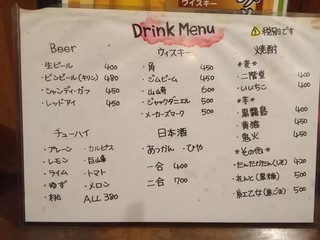 ウィスキー
Drink Menu
⚠税別です
Beer
・生ビール 400
・ビンビール(キリン) 480
・シャンディ・ガフ 450
・レッドアイ 450
ウィスキー
・角 450
・ジムビーム 450
・山崎 600
・ジャックダニエル 500
・メーカーズマーク 500
焼酎
*麦*
・二階堂 400
・いいちこ 400
*芋*
・黒霧島 400
・黄猿 450
・鬼火 450
*その他*
・たんたかたん(しそ) 420
・れんと(黒糖) 500
・紅乙女(黒ごま) 500
チューハイ
・プレーン ・カルピス
・レモン ・巨山峯
・ライム ・トマト
・ゆず ・メロン
ALL 380
日本酒
・あつかん ・ひや
一合 400
二合 700